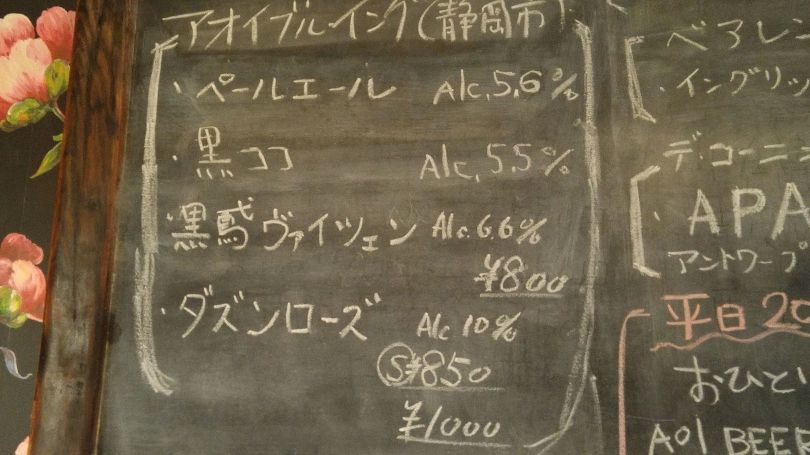 アオイブルーイング(静岡市)
・ペールエール Alc.5.6%
・黒ココ Alc.5.5%
・黒鳶ヴァイツェン Alc.6.6%
¥800
・ダズンローズ Alc10%
Ⓢ¥850
¥1000
ベアレン
・イングリッ
デ・コーニン
・APA
アントワープ
平日20
おひとり
AOI BEER